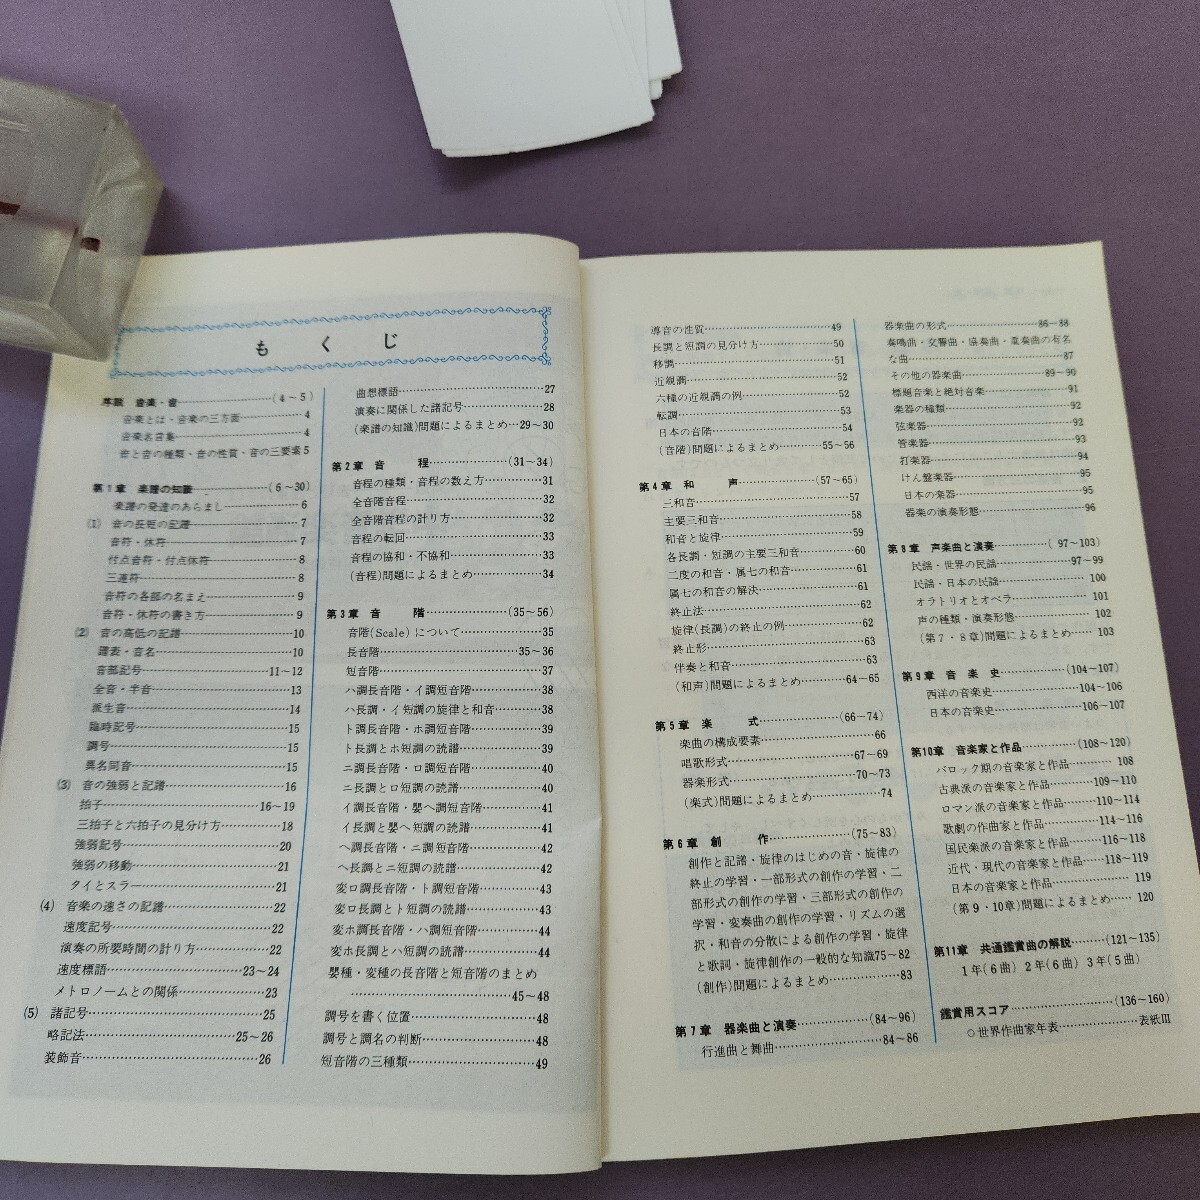 もくじ
序説 音楽・音……………(4～5)
音楽とは・音楽の三方面……………4
音楽名言集……………4
音と音の種類・音の性質・音の三要素5
第1章 楽譜の知識……………(6～30)
楽譜の発達のあらまし……………6
(1) 音の長短の記譜……………7
音符・休符……………7
付点音符・付点休符……………8
三連符……………8
音符の各部の名まえ……………9
音符・休符の書き方……………9
(2) 音の高低の記譜……………10
譜表・音名……………10
音部記号……………11～12
全音・半音……………13
派生音……………14
臨時記号……………15
調号……………15
異名同音……………15
(3) 音の強弱と記譜……………16
拍子……………16～19
三拍子と六拍子の見分け方……………18
強弱記号……………20
強弱の移動……………21
タイとスラー……………21
(4) 音楽の速さの記譜……………22
速度記号……………22
演奏の所要時間の計り方……………22
速度標語……………23～24
メトロノームとの関係……………23
(5) 諸記号……………25
略記法……………25～26
装飾音……………26
曲想標語……………27
演奏に関係した諸記号……………28
(楽譜の知識)問題によるまとめ…29～30
第2章 音程……………(31～34)
音程の種類・音程の数え方……………31
全音階音程……………32
全音階音程の計り方……………32
音程の転回……………33
音程の協和・不協和……………33
(音程)問題によるまとめ……………34
第3章 音階……………(35～56)
音階(Scale)について……………35
長音階……………35～36
短音階……………37
ハ調長音階・イ調短音階……………38
ハ長調・イ短調の旋律と和音……………38
ト調長音階・ホ調短音階……………39
ト長調とホ短調の読譜……………39
ニ調長音階・ロ調短音階……………40
ニ長調とロ短調の読譜……………40
イ調長音階・嬰ヘ調短音階……………41
イ長調と嬰ヘ短調の読譜……………41
ヘ調長音階・ニ調短音階……………42
ヘ長調とニ短調の読譜……………42
変ロ調長音階・ト調短音階……………43
変ロ長調とト短調の読譜……………43
変ホ調長音階・ハ調短音階……………44
変ホ長調とハ短調の読譜……………44
嬰種・変種の長音階と短音階のまとめ
……………45～48
調号を書く位置……………48
調号と調名の判断……………48
短音階の三種類……………49
導音の性質……………49
長調と短調の見分け方……………50
移調……………51
近親調……………52
六種の近親調の例……………52
転調……………53
日本の音階……………54
(音階)問題によるまとめ……………55～56
第4章 和声……………(57～65)
三和音……………57
主要三和音……………58
和音と旋律……………59
各長調・短調の主要三和音……………60
二度の和音・属七の和音……………61
属七の和音の解決……………61
終止法……………62
旋律(長調)の終止の例……………62
終止形……………63
伴奏と和音……………63
(和声)問題によるまとめ……………64～65
第5章 楽式……………(66～74)
楽曲の構成要素……………66
唱歌形式……………67～69
器楽形式……………70～73
(楽式)問題によるまとめ……………74
第6章 創作……………(75～83)
創作と記譜・旋律のはじめの音・旋律の
終止の学習・一部形式の創作の学習・二
部形式の創作の学習・三部形式の創作の
学習・変奏曲の創作の学習・リズムの選
択・和音の分散による創作の学習・旋律
と歌詞・旋律創作の一般的な知識75～82
(創作)問題によるまとめ……………83
第7章 器楽曲と演奏……………(84～96)
行進曲と舞曲……………84～86
器楽曲の形式……………86～88
奏鳴曲・交響曲・協奏曲・重奏曲の有名
な曲……………87
その他の器楽曲……………89～90
標題音楽と絶対音楽……………91
楽器の種類……………92
弦楽器……………92
管楽器……………93
打楽器……………94
けん盤楽器……………95
日本の楽器……………95
器楽の演奏形態……………96
第8章 声楽曲と演奏……………(97～103)
民謡・世界の民謡……………97～99
民謡・日本の民謡……………100
オラトリオとオペラ……………101
声の種類・演奏形態……………102
(第7・8章)問題によるまとめ……103
第9章 音楽史……………(104～107)
西洋の音楽史……………104～106
日本の音楽史……………106～107
第10章 音楽家と作品……………(108～120)
バロック期の音楽家と作品……………108
古典派の音楽家と作品……………109～110
ロマン派の音楽家と作品……………110～114
歌劇の作曲家と作品……………114～116
国民楽派の音楽家と作品……………116～118
近代・現代の音楽家と作品……118～119
日本の音楽家と作品……………119
(第9・10章)問題によるまとめ……120
第11章 共通鑑賞曲の解説………(121～135)
1年(6曲) 2年(6曲) 3年(5曲)
鑑賞用スコア……………(136～160)
◇世界作曲家年表……………表紙Ⅲ